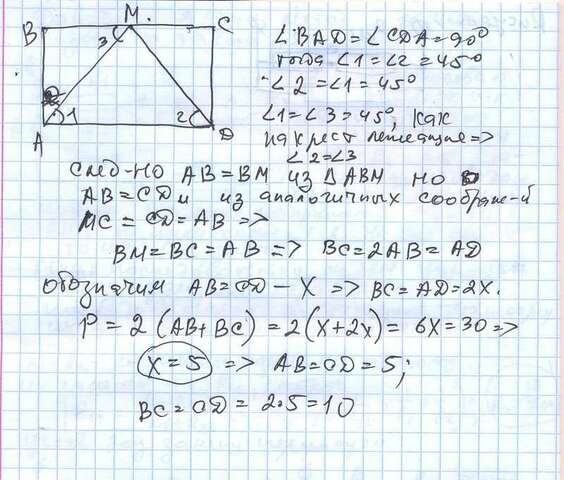 B M. C
3
A 1 2 D
∠BAD=∠CDA=90°
тогда ∠1=∠2=45°
∠2=∠1=45°
∠1=∠3=45°, как
накрест лежащие =>
∠2=∠3
след-но AB=BM из ΔABM но
AB=CD и из аналогичных соображе-й
MC=CD=AB =>
BM=BC=AB => BC=2AB=AD
обозначим AB=CD-X => BC=AD=2X.
P=2(AB+BC)=2(X+2X)=6X=30 =>
X=5 => AB=CD=5;
BC=CD=2·5=10